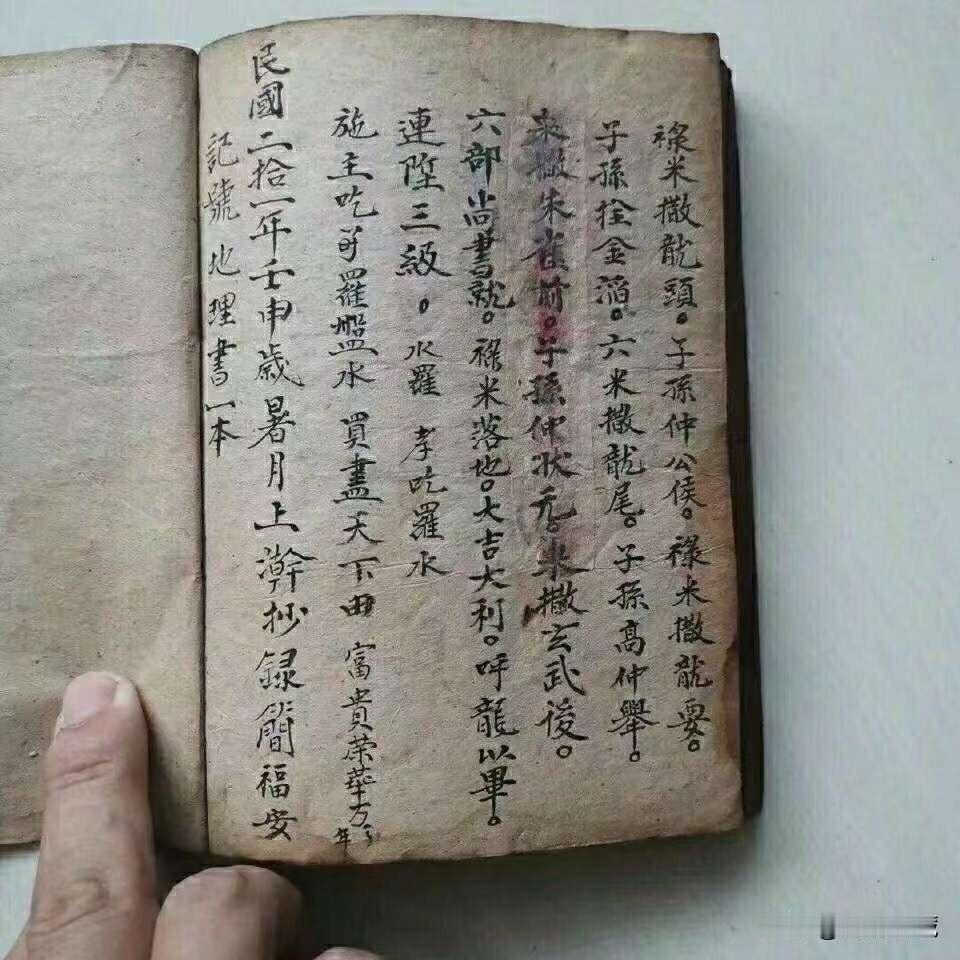 祿米撒龍頭。子孫仲公侯。祿米撒龍要。
子孫拴金滔。六米撒龍尾。子孫高仲舉。
米撒朱雀前。子孫仲狀元。米撒玄武後。
六部尚書就。祿米落地。大吉大利。呼龍以畢。
連陞三級。水羅 孝吃羅水
施主吃羅盤水 買盡天下田 富貴荣華万年
民國二拾一年壬申歲暑月上澣抄録簡福安
記號地理書一本